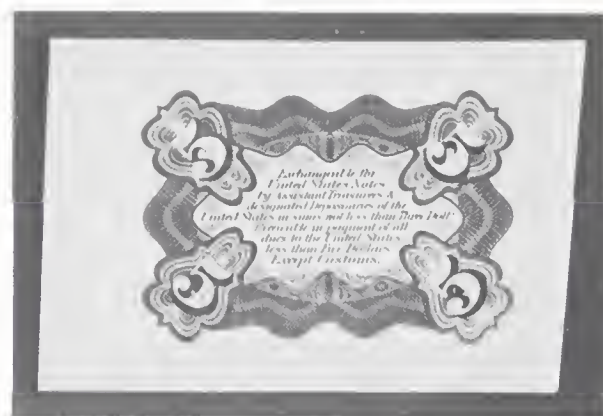 Exchangeable for
United States Notes
by Assistant Treasurers &
designated Depositaries of the
United States in sums not less than Three Doll^s
Receivable in payment of all
dues to the United States
less than Five Dollars
Except Customs.